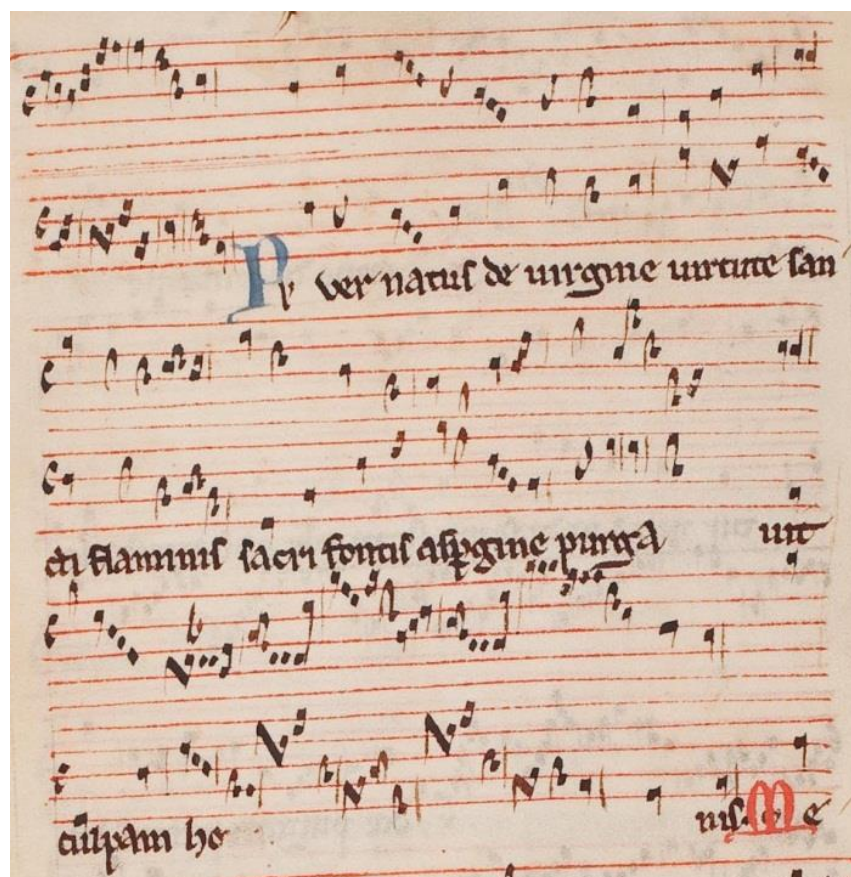 Pr ver natus de uirgine uirtute san
cti flaminis sacri fontis aspgine purga uit
culpam ho nis. Me